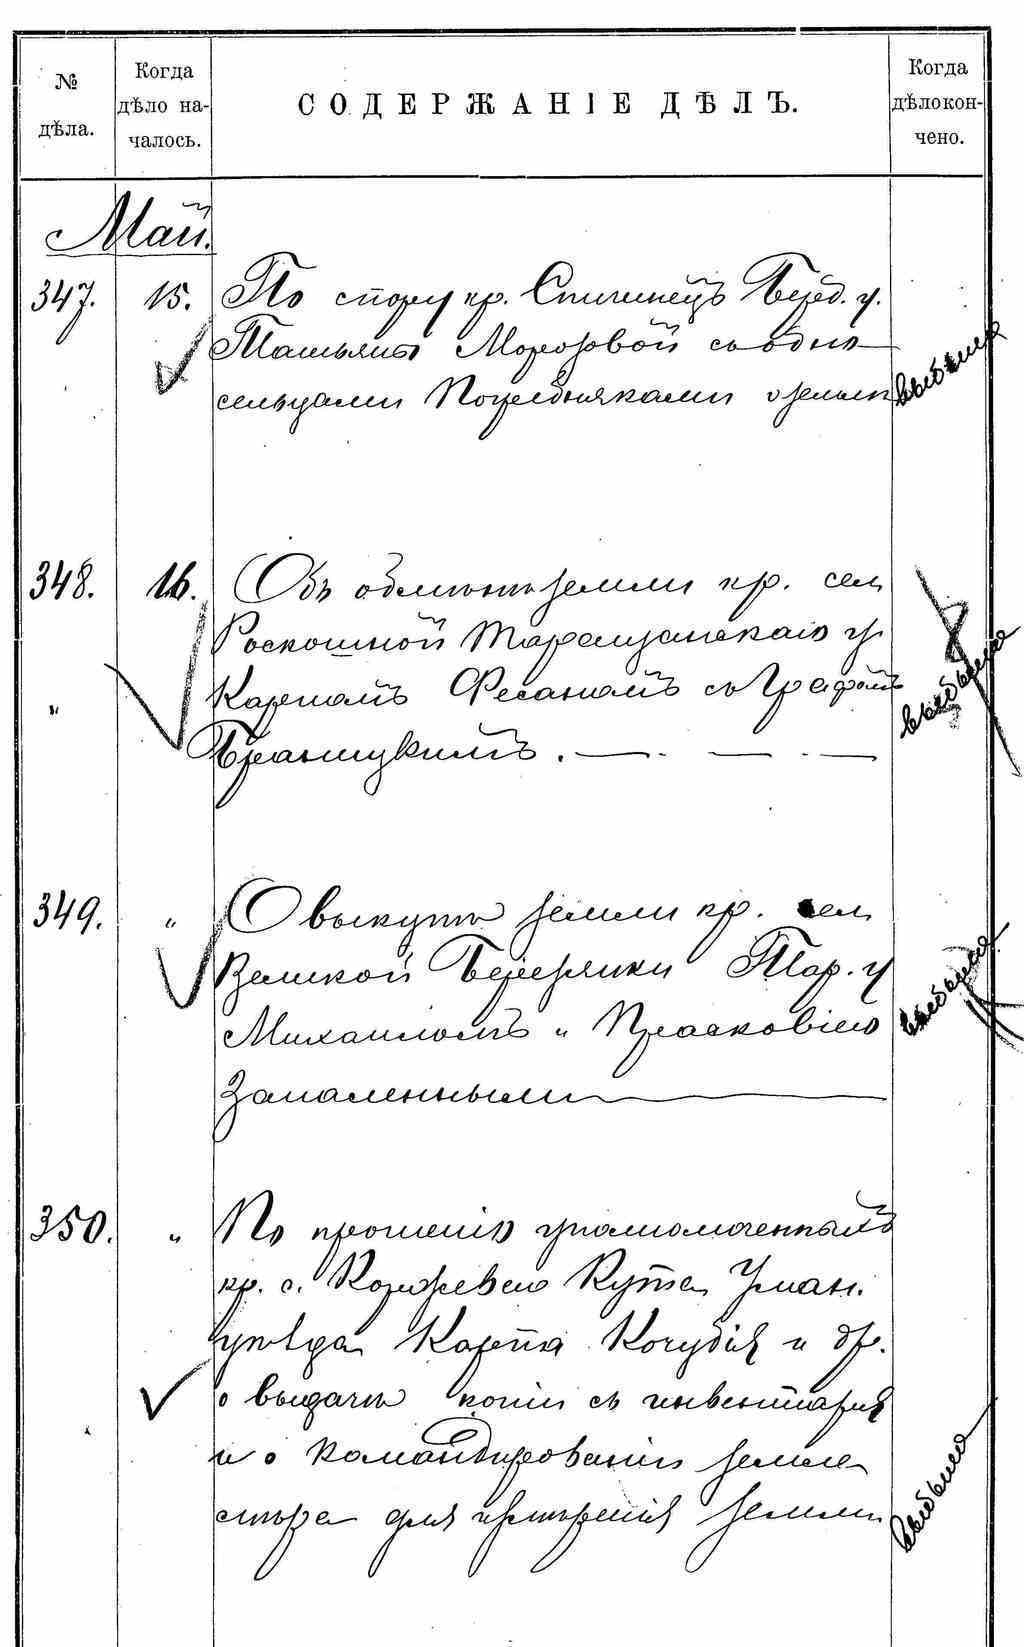 № дѣла.
Когда дѣло на-
чалось.
СОДЕРЖАНІЕ ДѢЛЪ.
Когда
дѣло кон-
чено.
Май.
347. 15. По спору кр. Спичинецъ Берд. у.
Татьяны Морозовой съ одно
сельцами Погребняками о земли
выбыла
348. 16. Объ обмѣнѣ земли кр. сел
Роскошной Таращанскаго у
" Карпомъ Фесаномъ съ Графомъ
Браницкимъ. — . — . —
выбыла
349. " О выкупѣ земли кр. сел
Великой Березянки Тар. у
Михаиломъ и Прасковіею
Запаленными
выбыла
350. " По прошенію уполномоченныхъ
кр. с. Коржеваго Кута Уман.
уѣзда Карпа Кочубія и др.
о выдачѣ копіи съ инвентаря
и о командированіи земле
мѣра для измѣренія земли
выбыла